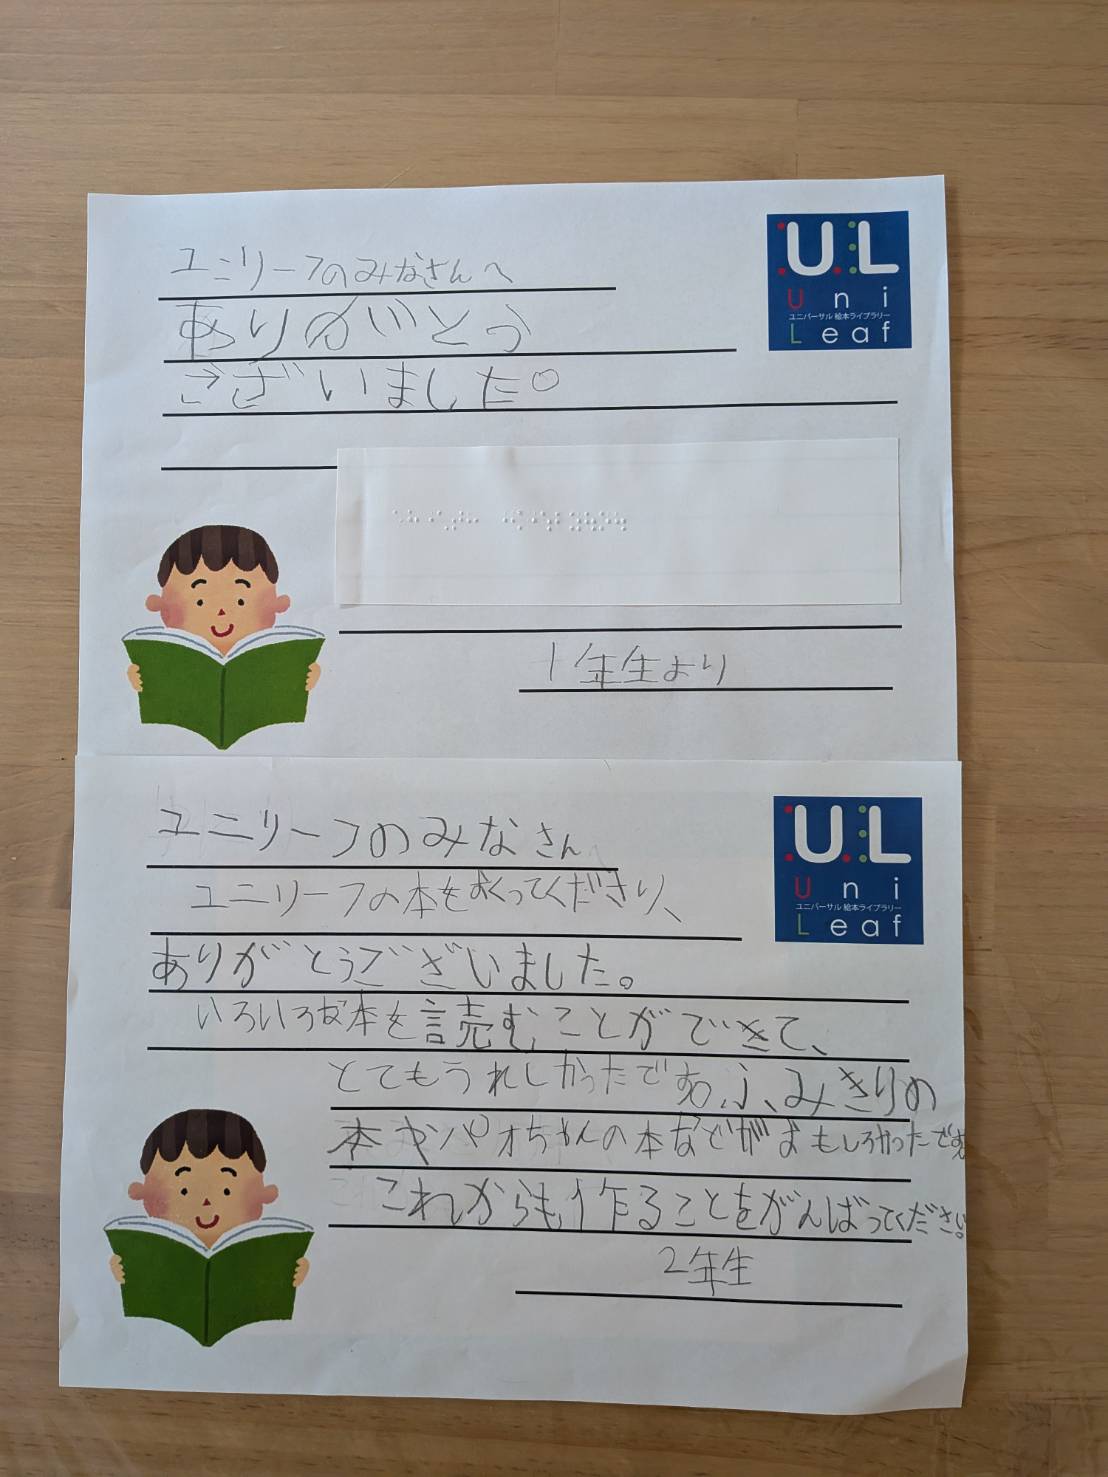 ユニリーフのみなさんへ
ありがとう
ございました。
UL
Uni
ユニバーサル 絵本ライブラリー
Leaf
1年生より
ユニリーフのみなさん
ユニリーフの本をおくってくださり、
ありがとうございました。
いろいろな本を読むことができて、
とてもうれしかったです。ふみきりの
本やパオちゃんの本などがおもしろかったです。
これからも作ることをがんばってください。
UL
Uni
ユニバーサル 絵本ライブラリー
Leaf
2年生